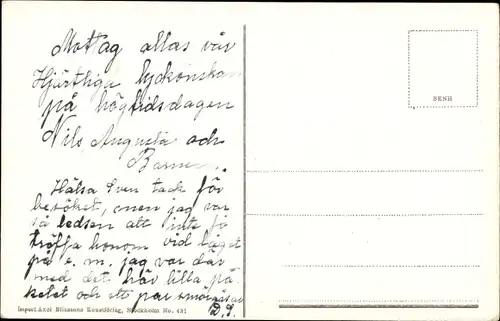 Mottag allas vår
Hjärtliga lyckönskan
på högtidsdagen
Nils Augusta och
Barnen.
Hälsa Sven tack för
besöket, men jag var
så ledsen att inte få
träffa honom vid tåget
på e. m. jag var där
med det här lilla på-
ketet och ett par smörgåsar
D. S.
BKSH
Import Axel Eliassons Konstförlag, Stockholm No. 431